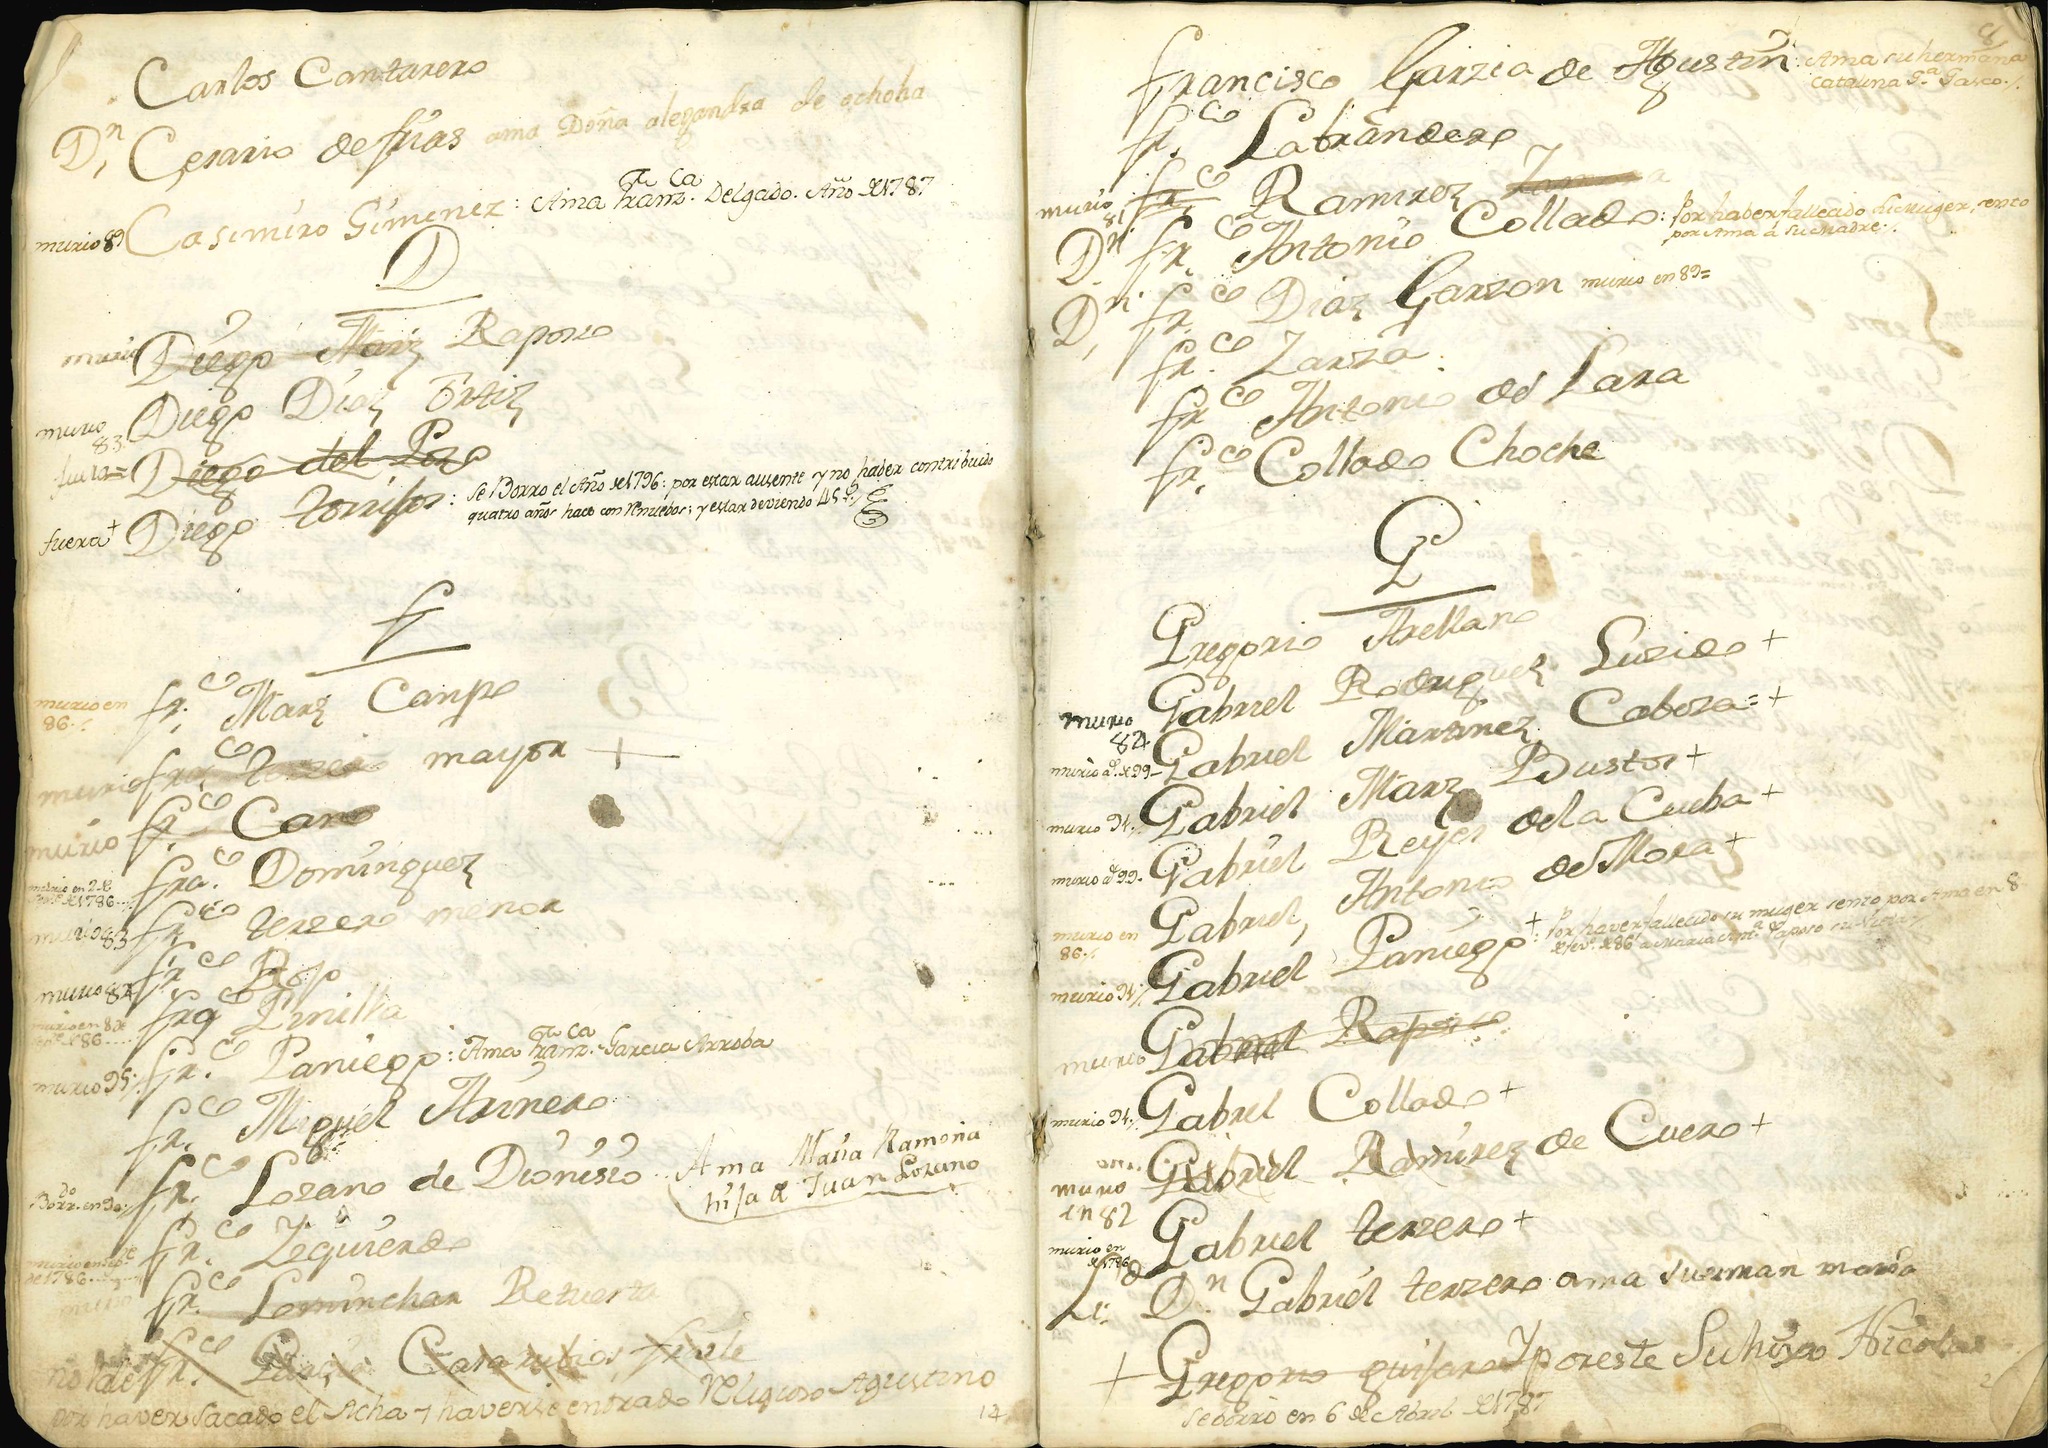 Carlos Canturero
Dn. Cesario de frias ama Doña alegandra de ochoba
murio 89 Casimiro Gimenez: Ama Franz.ca Delgado. Año de 1787
D
murio Diego Marz Raposo
murio 83. Diego Diaz Ortiz
fuera= Diego del Pozo
fuera + Diego torrijos: Se Borro el Año de 1796: por estar ausente y no haber contribuido
quatro años hace con Nuebos; y estar deviendo 45
F
murio en 86. fr.co Marz Canpo
murio fr.co terzero mayor +
murio fr.co Cano
fra.co Dominguez
murio 83 fr.co terzero menor
murio 82 fr.co Rojo
fra.co Pinilla
murio 95. fr.co Paniego: Ama Franz.ca Garcia Arroba
fr.co Miguel Arinero
Borr.do en 90. fr.co Lozano de Dionisio Ama Maria Ramona
hija de Juan Lozano
de 1786 fr.co Izquierdo
murio fr.co Lominchar Retuerta
fr.co Garcia Casarubios, fraile
por haver sacado el Acha y haverse entrado Religioso Agustino
14
8
Francisco Garzia de Agustin: Ama su hermana
Catalina G.a Gasco.
fr.co Labrandero
murio 81 fr.co Ramirez
Dn. fr.co Antonio Collado: Por haber fallecido su muger, sento
por Ama á su Madre.
Dn. fr.co Diaz Garzon murio en 89=
fr.co Zarza
fr.co Antonio de Lara
fr.co Collado Choche
G
Gregorio Arellano
Gabriel Rodriguez Luzido +
murio 82 Gabriel Martinez Cabeza= +
murio a.o de 99 Gabriel Marz Bustos +
murio 94. Gabriel Reyes de la Cueba +
murio a.o 99. Gabriel, Antonio de Mora +
murio en 86. Gabriel Paniego +: Por haver fallecido su muger sento por Ama en 8
murio 94.
murio Gabriel Raposo
murio 94. Gabriel Collado +
murio en 82 Gabriel Ramirez de Cuero +
murio en de 1786 Gabriel terzero +
Li.do Dn. Gabriel terzero ama su erman maria
+ Gregorio quijano Y por este Su hijo Nicolas
Se borró en 6 de Abril de 1787